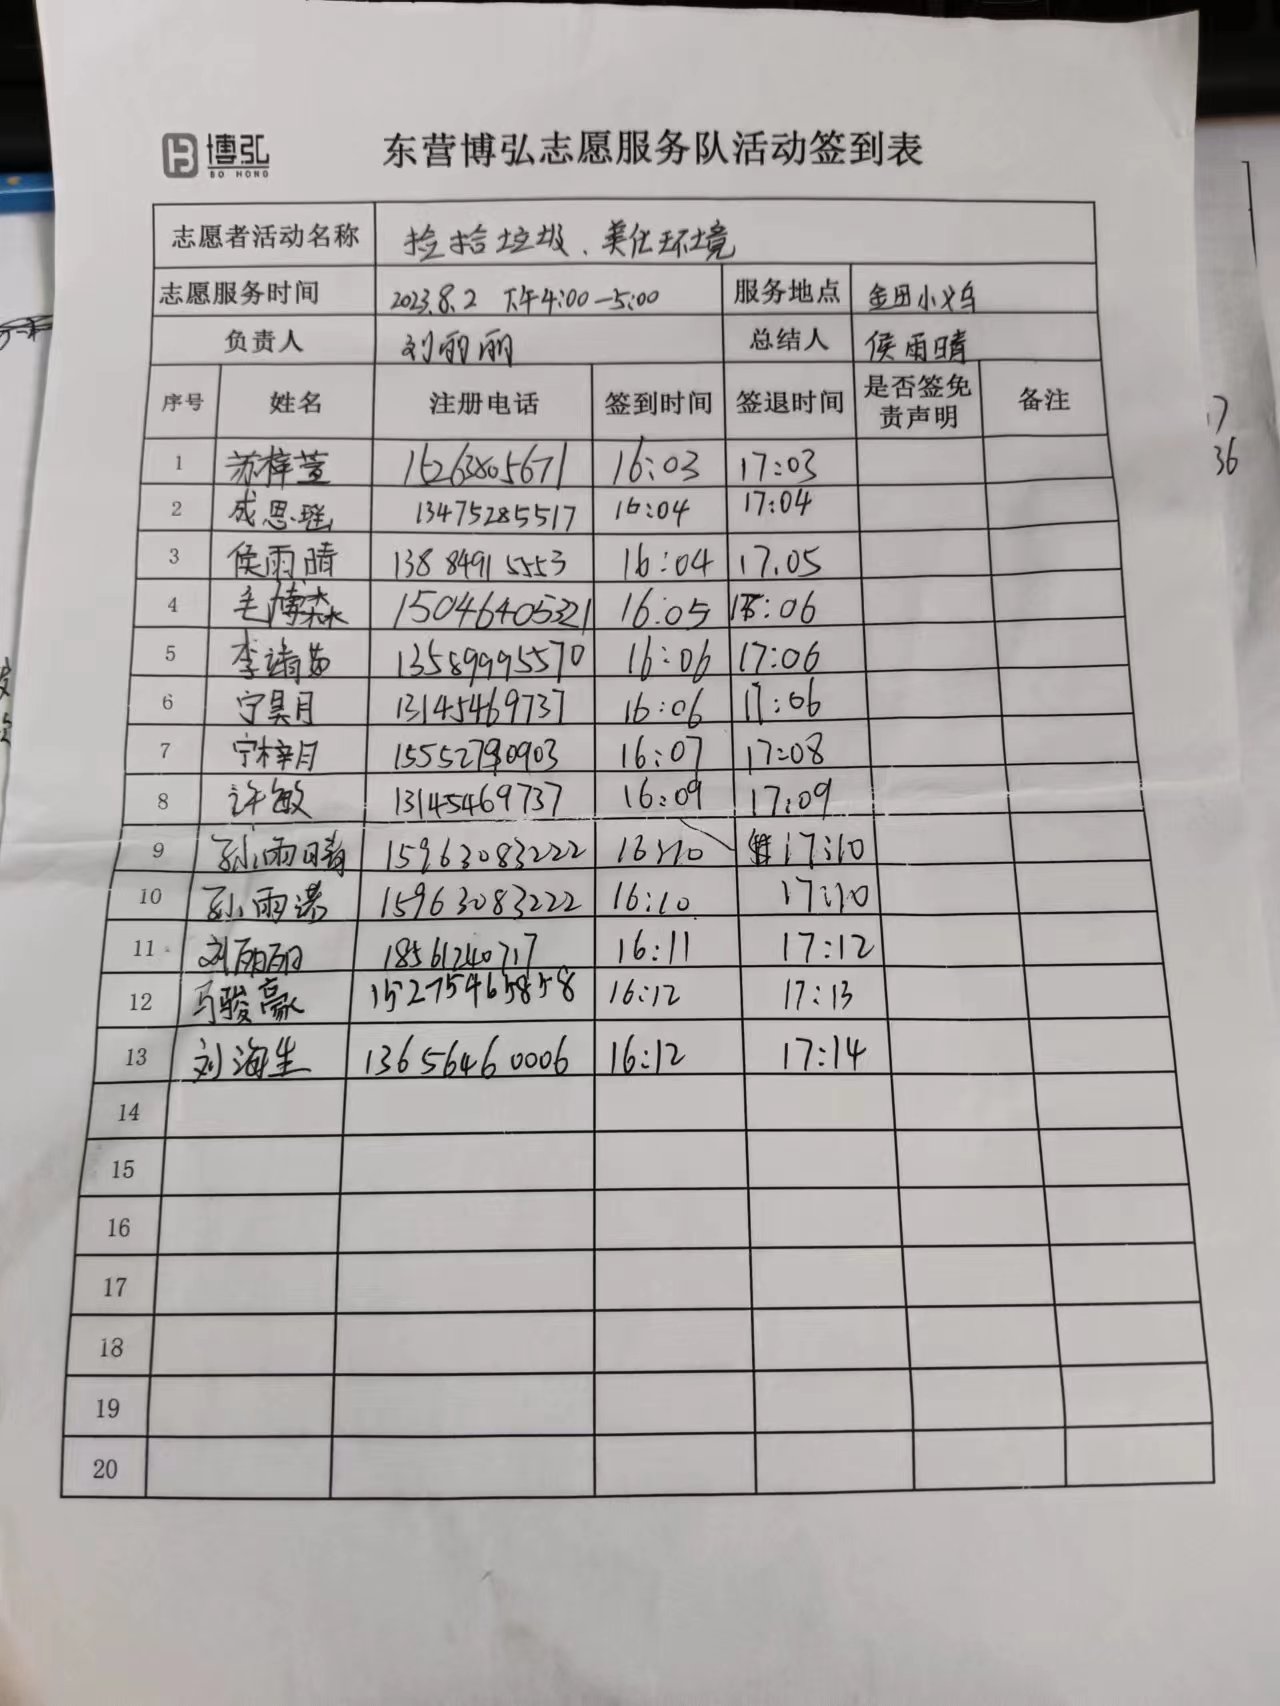 博弘
BO HONG
东营博弘志愿服务队活动签到表
志愿者活动名称 捡拾垃圾、美化环境
志愿服务时间 2023.8.2 下午4:00-5:00 服务地点 金田小义乌
负责人 刘丽丽 总结人 侯雨晴
序号 姓名 注册电话 签到时间 签退时间 是否签免责声明 备注
1 苏梓萱 15263805671 16:03 17:03
2 成思瑶 13475285517 16:04 17:04
3 侯雨晴 13884915553 16:04 17.05
4 毛博森 15046405321 16:05 :06
5 李靖茹 13589995570 16:06 17:06
6 宁昊月 13145469737 16:06 17:06
7 宁梓月 15552790903 16:07 17:08
8 许敏 13145469737 16:09 17:09
9 孙雨晴 15963083222 16:10 17:10
10 孙雨诺 15963083222 16:10 17:10
11 刘丽丽 18561240717 16:11 17:12
12 马骏豪 15275465858 16:12 17:13
13 刘海生 13656460006 16:12 17:14
14
15
16
17
18
19
20
17
36